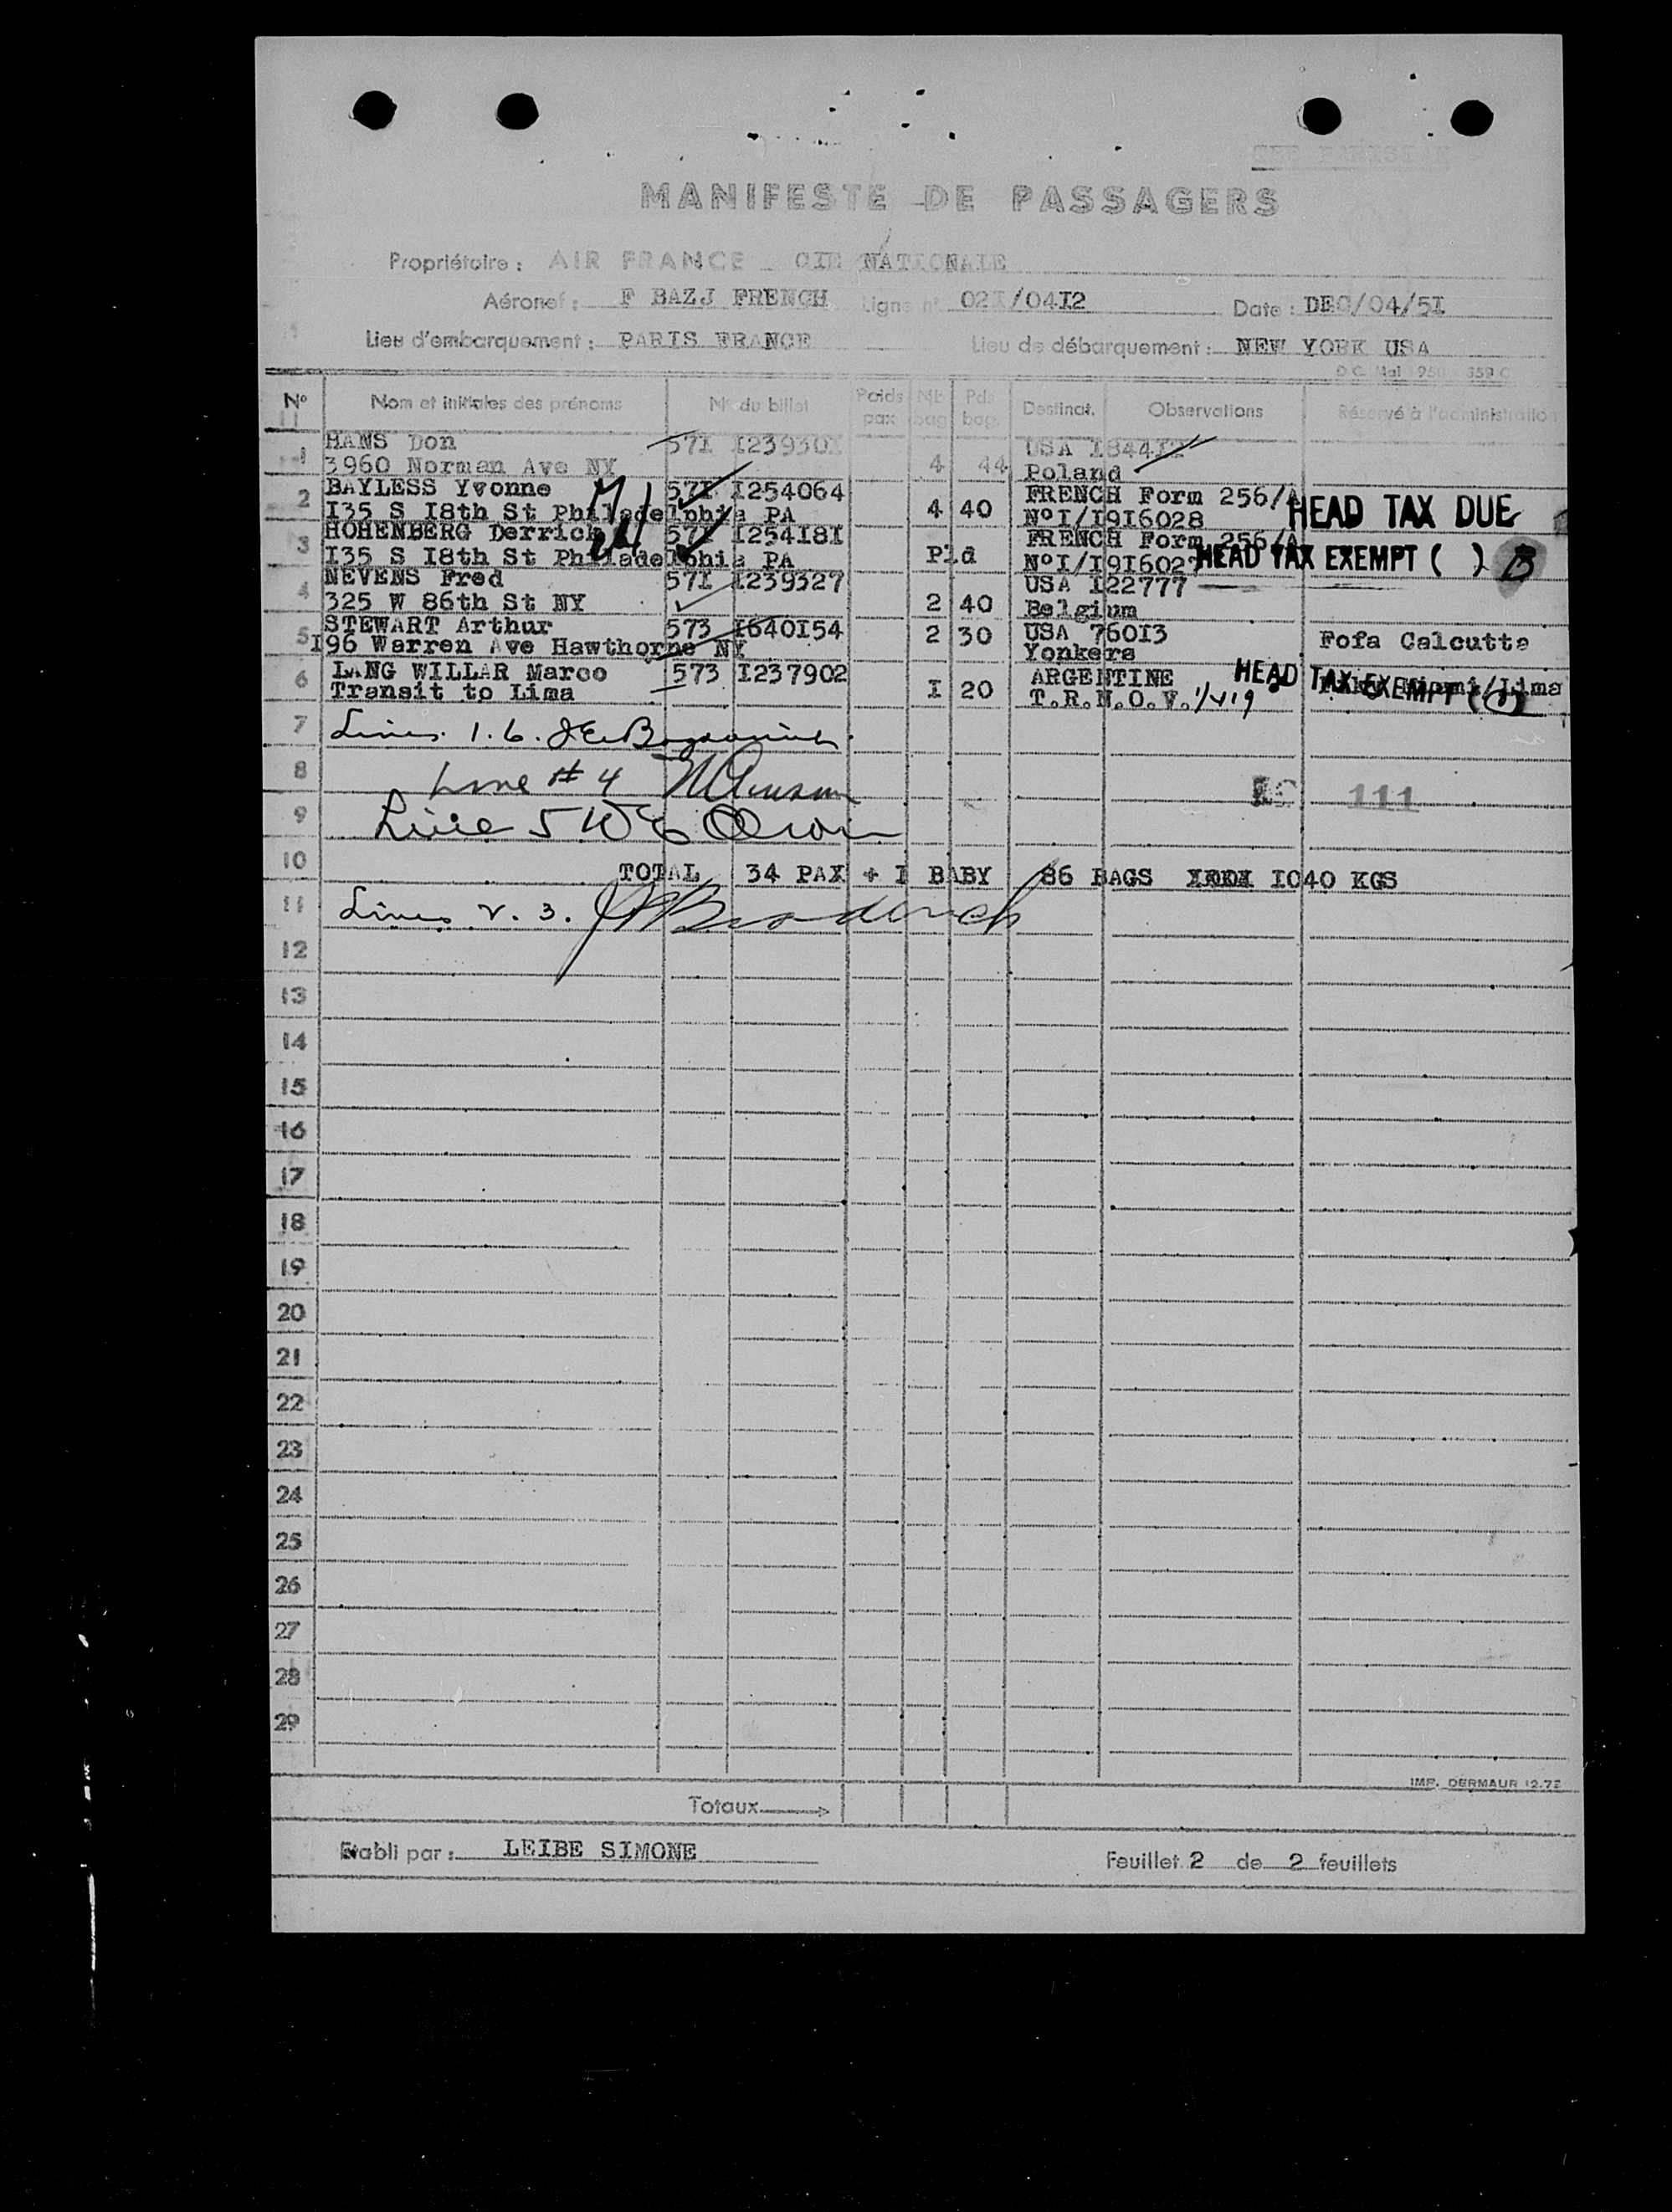 MANIFESTE DE PASSAGERS
Propriétaire : AIR FRANCE CIE NATIONALE
Aéronef : F BAZJ FRENCH Ligne n° 02I/04I2 Date : DEC/04/5I
Lieu d'embarquement : PARIS FRANCE Lieu de débarquement : NEW YORK USA
N° Nom et initiales des prénoms N° du billet Poids pax Nb bag Pds bag. Destinat. Observations Réservé à l'administration
1 HANS Don 57I I23930I USA I844I2
3960 Norman Ave NY 4 44 Poland
2 BAYLESS Yvonne 57I I254064 FRENCH Form 256/A HEAD TAX DUE
I35 S I8th St Philadelphia PA 4 40 N°I/I9I6028
3 HOHENBERG Derrick 57I I254I8I FRENCH Form 256/A
I35 S I8th St Philadelphia PA Pld N°I/I9I6027 HEAD TAX EXEMPT ( ) B
4 NEVENS Fred 57I I239327 USA I22777
325 W 86th St NY 2 40 Belgium
5 STEWART Arthur 573 I640I54 2 30 USA 760I3 Fofa Calcutta
I96 Warren Ave Hawthorne NY Yonkers
6 LANG WILLAR Marco 573 I237902 ARGENTINE HEAD TAX EXEMPT
Transit to Lima I 20 T.R.N.O.V. Miami/Lima
7 Lines 1. 6.
8 Line # 4
9 Line 5
111
10 TOTAL 34 PAX + I BABY 86 BAGS I040 KGS
11 Lines 2. 3.
12
13
14
15
16
17
18
19
20
21
22
23
24
25
26
27
28
29
IMP. DERMAUR
Totaux
Etabli par : LEIBE SIMONE
Feuillet 2 de 2 feuillets